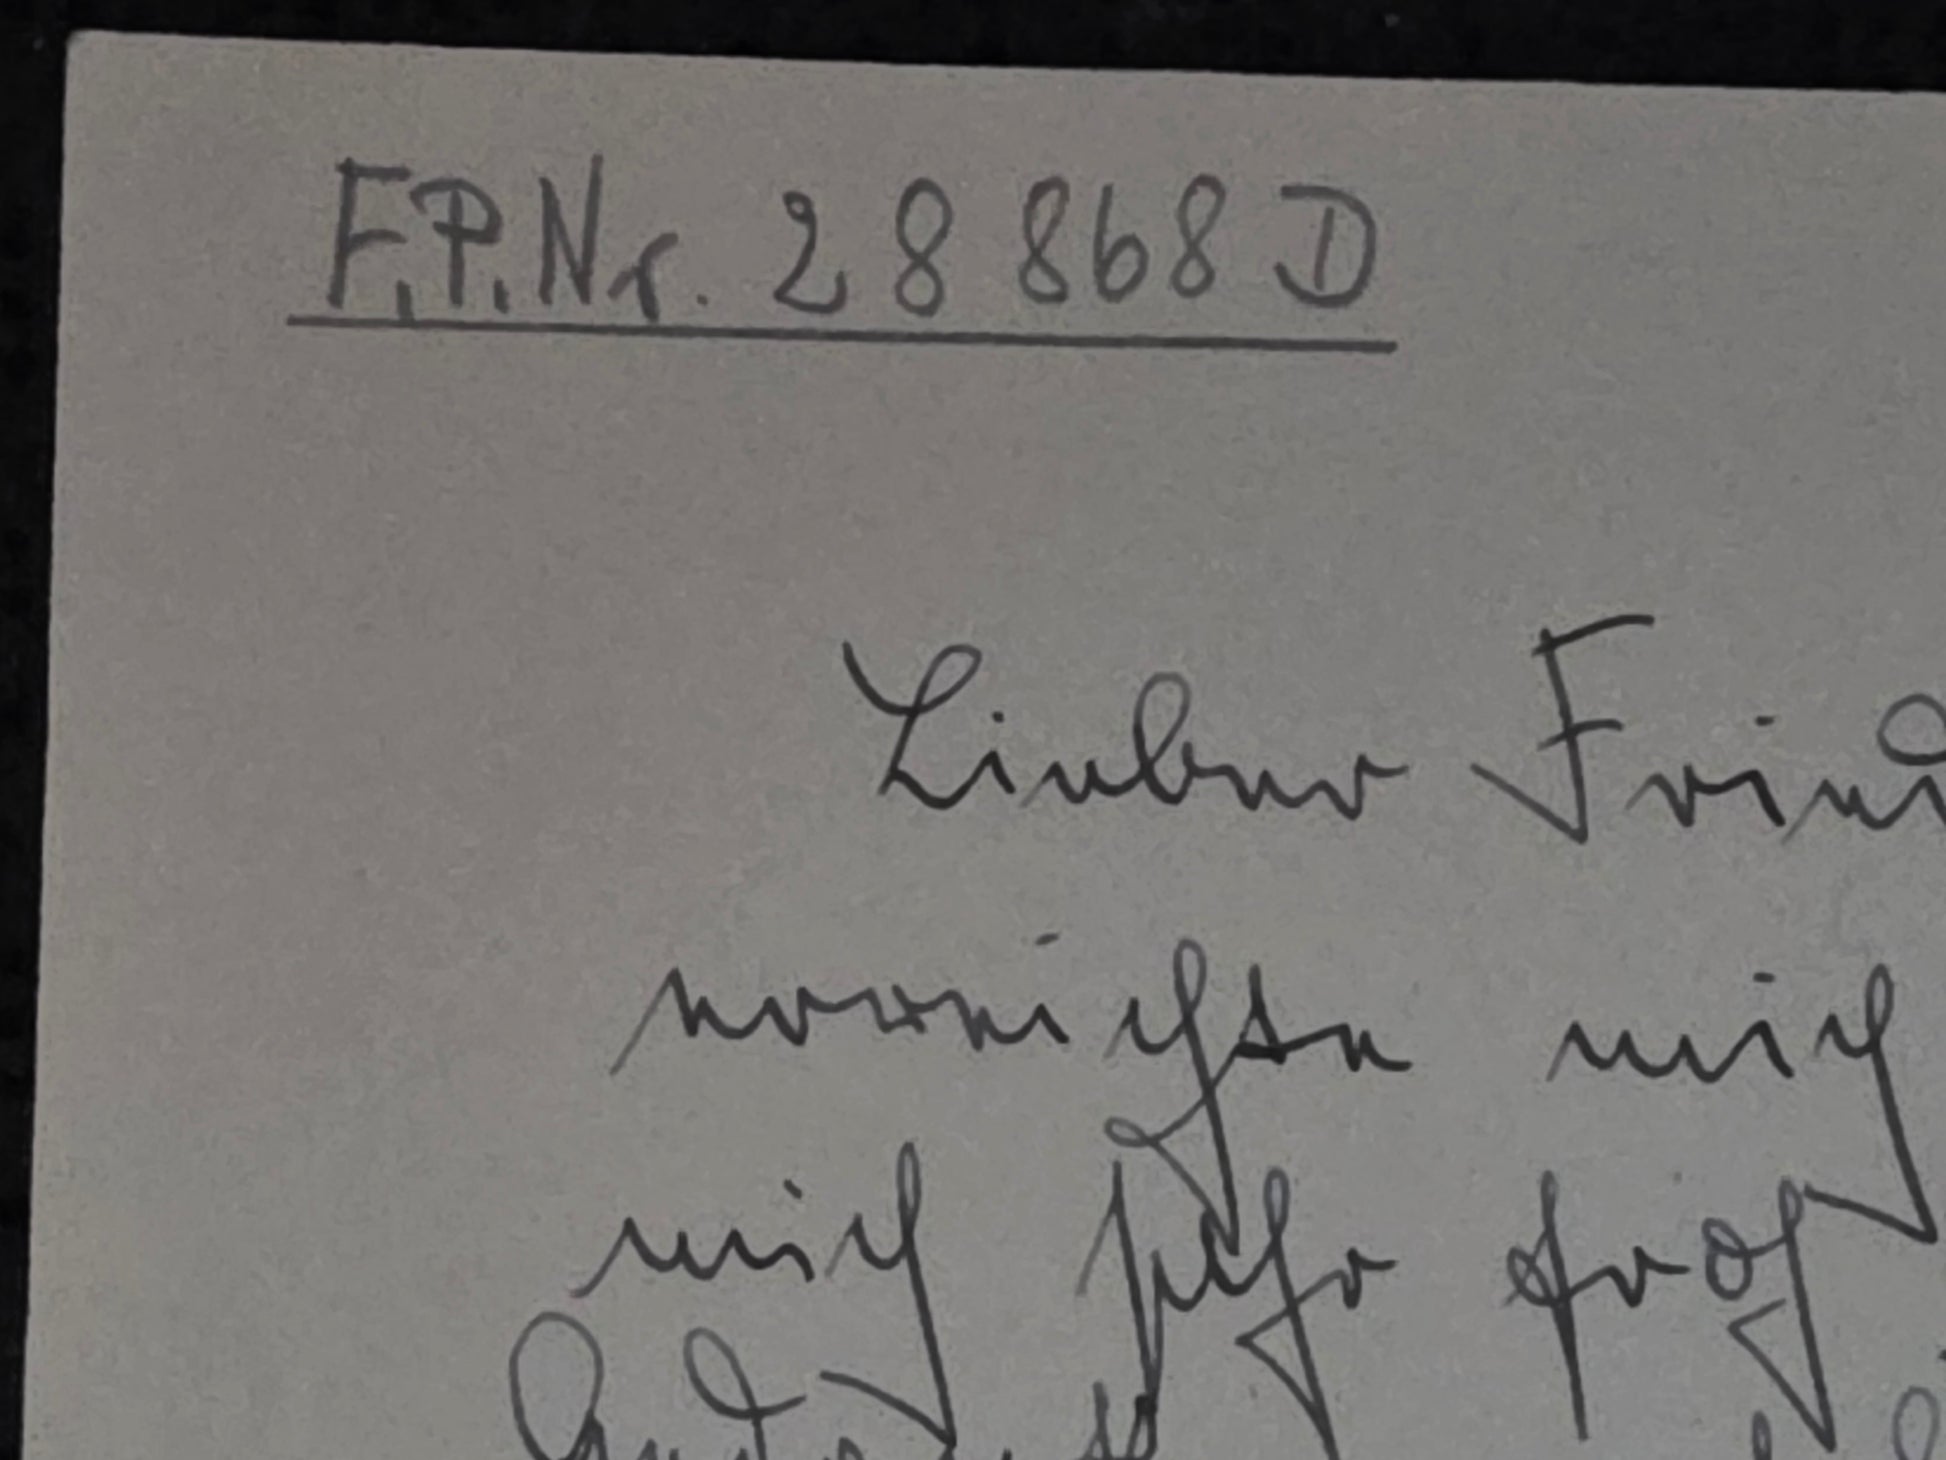 F.P.Nr. 28 868 D
Lieber Fried
erreichte mich
mich sehr froh